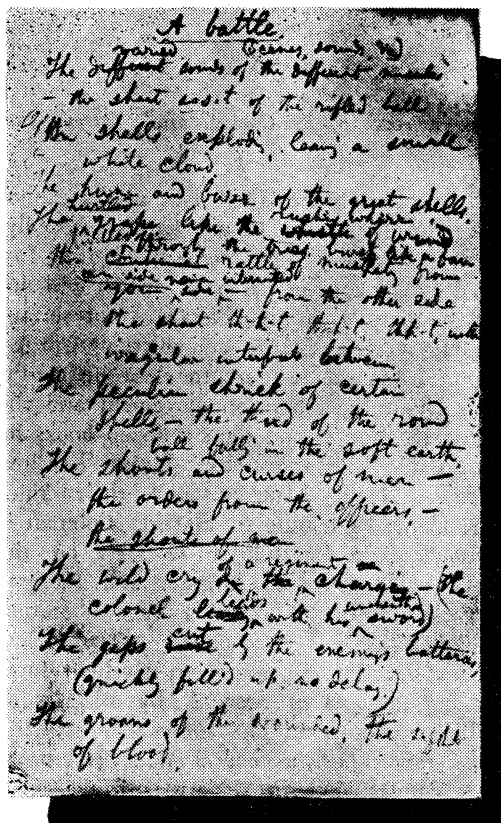 A battle.
varied (scenes, sounds, &c)
The different sounds of the different missiles
— the short s-s-t of the rifled ball
Of the shells exploding, leaving a small
white cloud,
The hum and buzz of the great shells.
rushing
The grape like the of wind
through the trees
the continuous rattle of musketry from
on one side
you side from the other side
the short th-h-t th-h-t, thh-t, with
irregular intervals between
The peculiar shriek of certain
shells — the thud of the round
ball falling in the soft earth,
The shouts and curses of men —
the orders from the officers, —
the shouts of men
of a regiment
The wild cry the charging — (the
leads unsheathed
colonel with his sword)
cut
The gaps by the enemy's batteries,
(quickly fill'd up, no delay.)
The groans of the wounded, the sight
of blood,